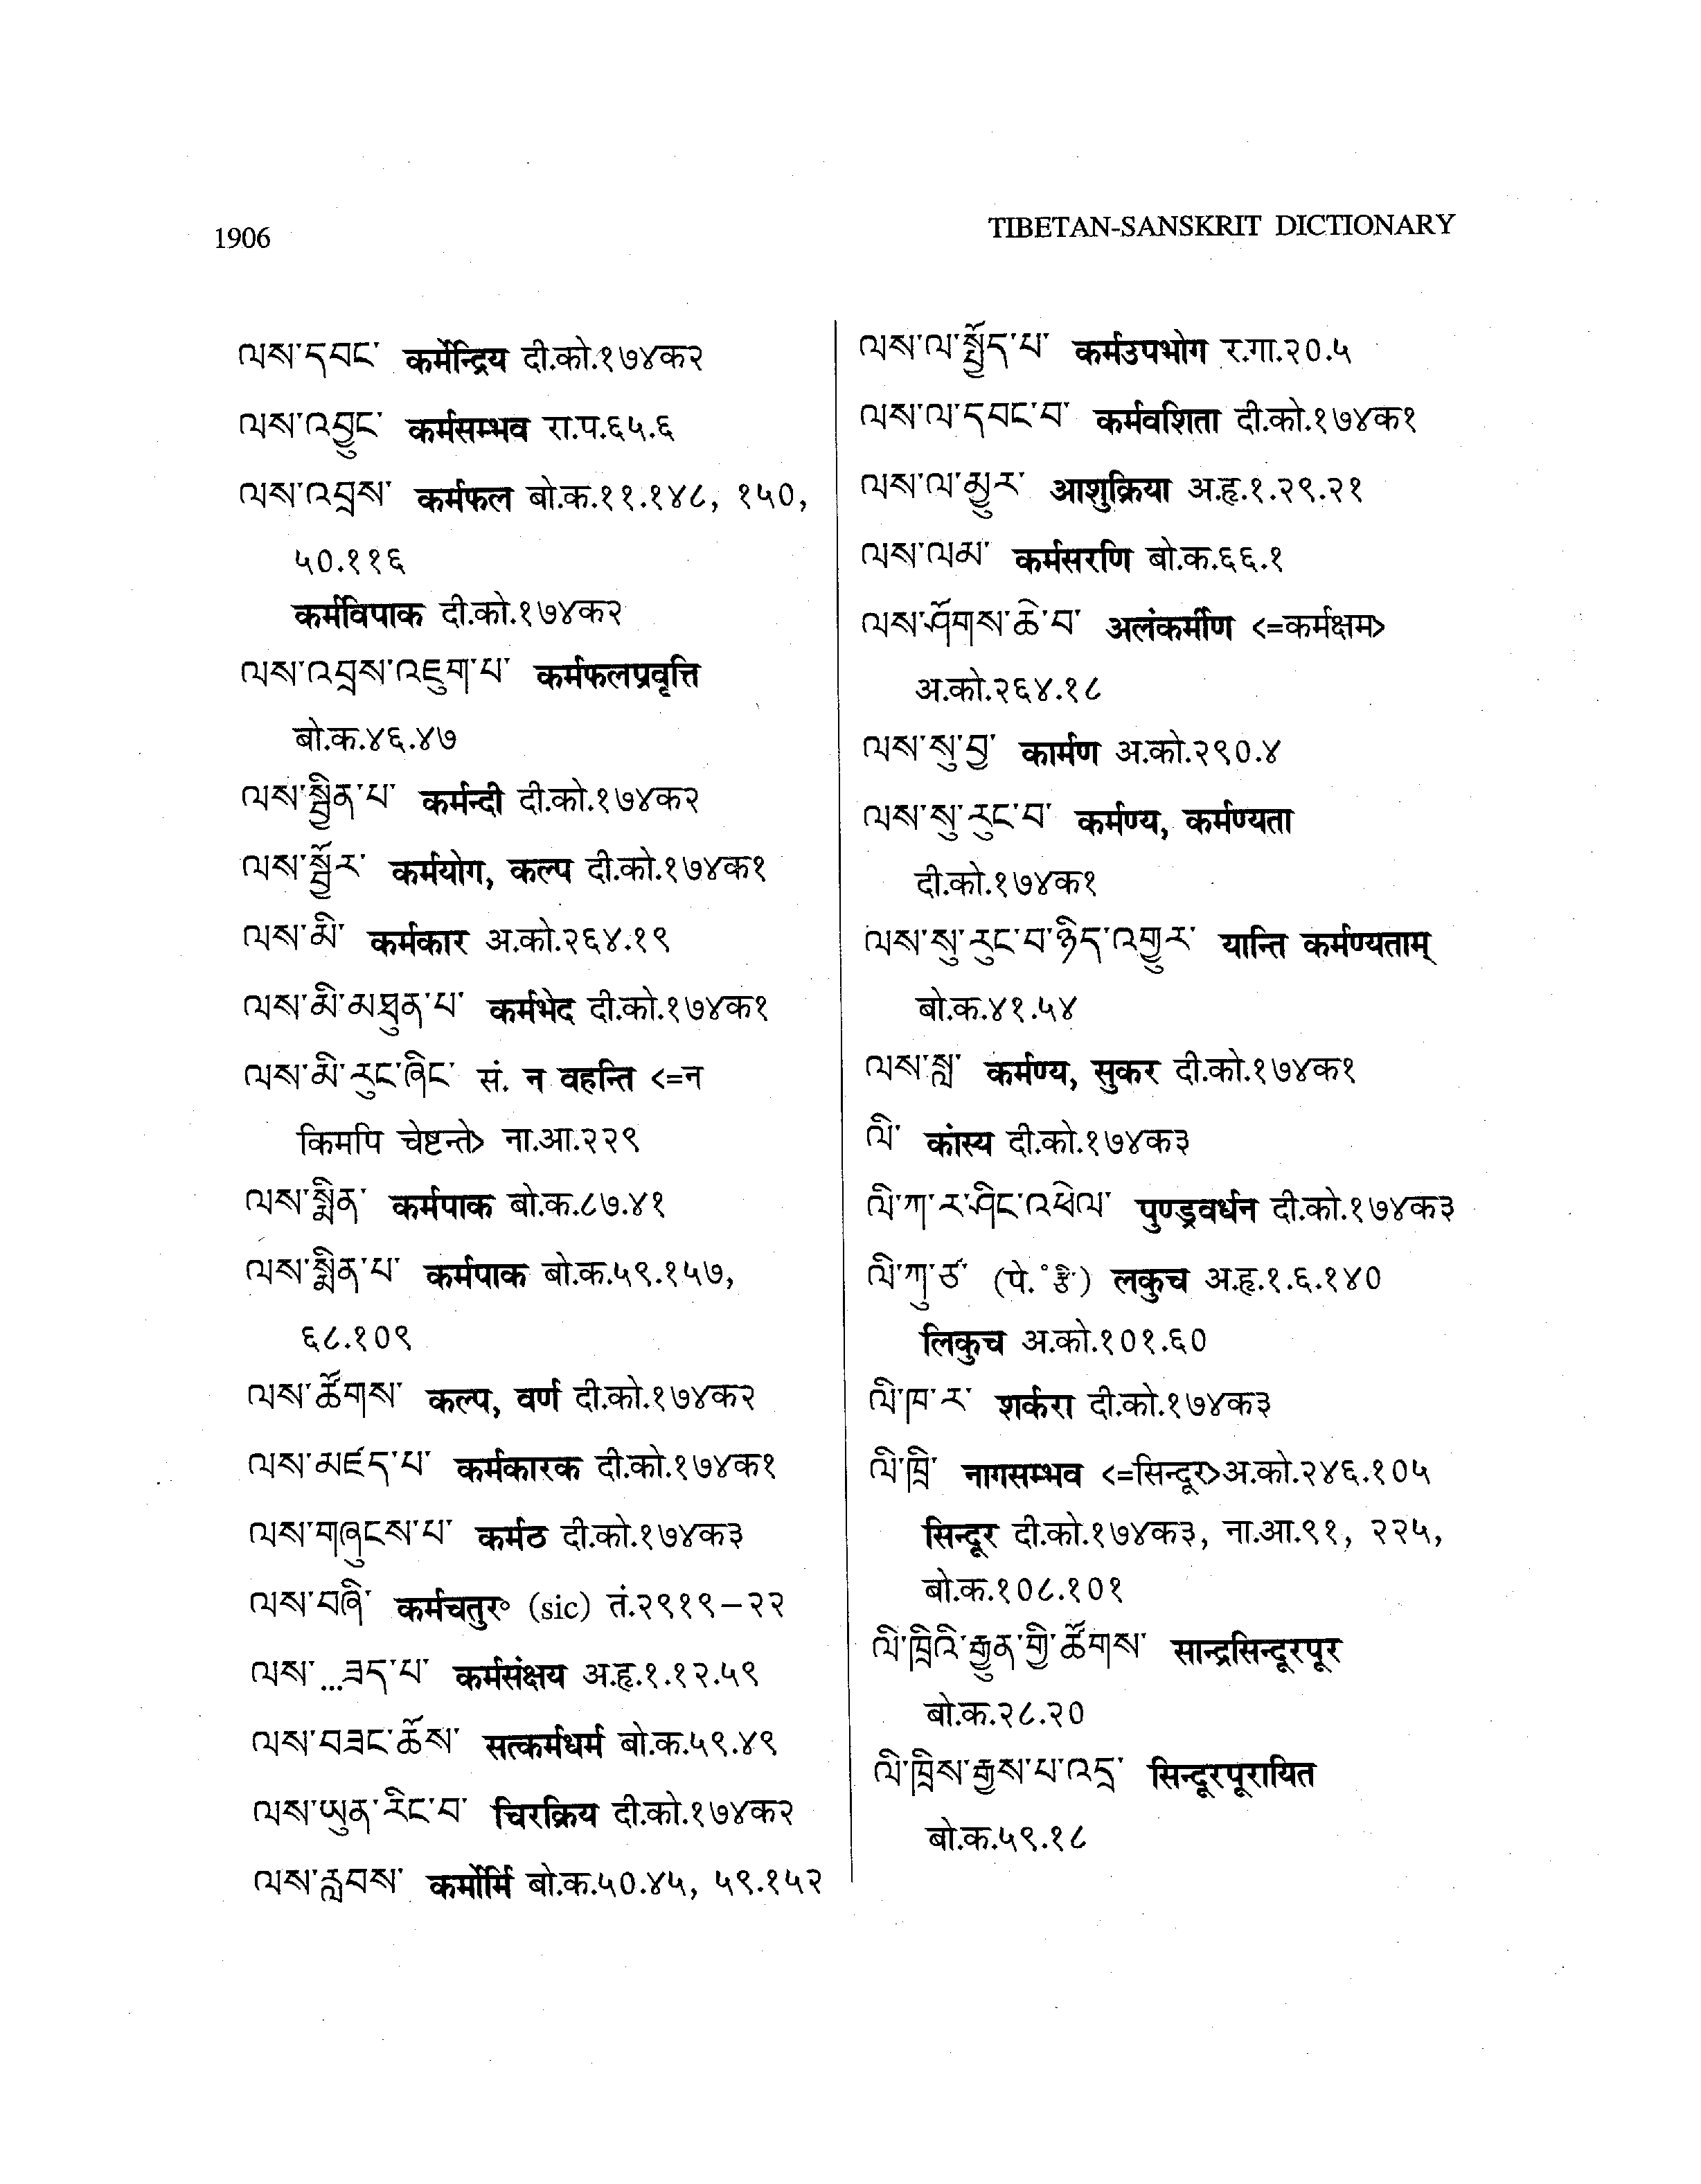 1906
TIBETAN-SANSKRIT DICTIONARY
ལས་དབང་ कर्मेन्द्रिय दी.को.१७४क२
ལས་འབྱུང་ कर्मसम्भव रा.प.६५.६
ལས་འབྲས་ कर्मफल बो.क.११.१४८, १५०,
५०.११६
कर्मविपाक दी.को.१७४क२
ལས་འབྲས་འཇུག་པ་ कर्मफलप्रवृत्ति
बो.क.४६.४७
ལས་སྦྱིན་པ་ कर्मन्दी दी.को.१७४क२
ལས་སྦྱོར་ कर्मयोग, कल्प दी.को.१७४क१
ལས་མི་ कर्मकार अ.को.२६४.१९
ལས་མི་མཐུན་པ་ कर्मभेद दी.को.१७४क१
ལས་མི་རུང་ཞིང་ सं. न वहन्ति <=न
किमपि चेष्टन्ते> ना.आ.२२९
ལས་སྨིན་ कर्मपाक बो.क.८७.४१
ལས་སྨིན་པ་ कर्मपाक बो.क.५९.१५७,
६८.१०९
ལས་ཚོགས་ कल्प, वर्ण दी.को.१७४क२
ལས་མཛད་པ་ कर्मकारक दी.को.१७४क१
ལས་གཞུངས་པ་ कर्मठ दी.को.१७४क३
ལས་བཞི་ कर्मचतुर॰ (sic) तं.२९१९–२२
ལས་...ཟད་པ་ कर्मसंक्षय अ.हृ.१.१२.५९
ལས་བཟང་ཆོས་ सत्कर्मधर्म बो.क.५९.४९
ལས་ཡུན་རིང་བ་ चिरक्रिय दी.को.१७४क२
ལས་རླབས་ कर्मोर्मि बो.क.५०.४५, ५९.१५२
ལས་ལ་སྤྱོད་པ་ कर्मउपभोग र.गा.२०.५
ལས་ལ་དབང་བ་ कर्मवशिता दी.को.१७४क१
ལས་ལ་མྱུར་ आशुक्रिया अ.हृ.१.२९.२१
ལས་ལམ་ कर्मसरणि बो.क.६६.१
ལས་ཤོགས་ཆེ་བ་ अलंकर्मीण <=कर्मक्षम>
अ.को.२६४.१८
ལས་སུ་བྱ་ कार्मण अ.को.२९०.४
ལས་སུ་རུང་བ་ कर्मण्य, कर्मण्यता
दी.को.१७४क१
ལས་སུ་རུང་བ་ཉིད་འགྱུར་ यान्ति कर्मण्यताम्
बो.क.४१.५४
ལས་སླ་ कर्मण्य, सुकर दी.को.१७४क१
ལི་ कांस्य दी.को.१७४क३
ལི་ཀ་ར་ཤིང་འཕེལ་ पुण्ड्रवर्धन दी.को.१७४क३
ལི་ཀུ་ཙ་ (पे.°) लकुच अ.हृ.१.६.१४०
लिकुच अ.को.१०१.६०
ལི་ཁ་ར་ शर्करा दी.को.१७४क३
ལི་ཁྲི་ नागसम्भव <=सिन्दूर>अ.को.२४६.१०५
सिन्दूर दी.को.१७४क३, ना.आ.९१, २२५,
बो.क.१०८.१०१
ལི་ཁྲིའི་རྒྱུན་གྱི་ཚོགས་ सान्द्रसिन्दूरपूर
बो.क.२८.२०
ལི་ཁྲིས་རྒྱས་པ་འདྲ་ सिन्दूरपूरायित
बो.क.५९.१८